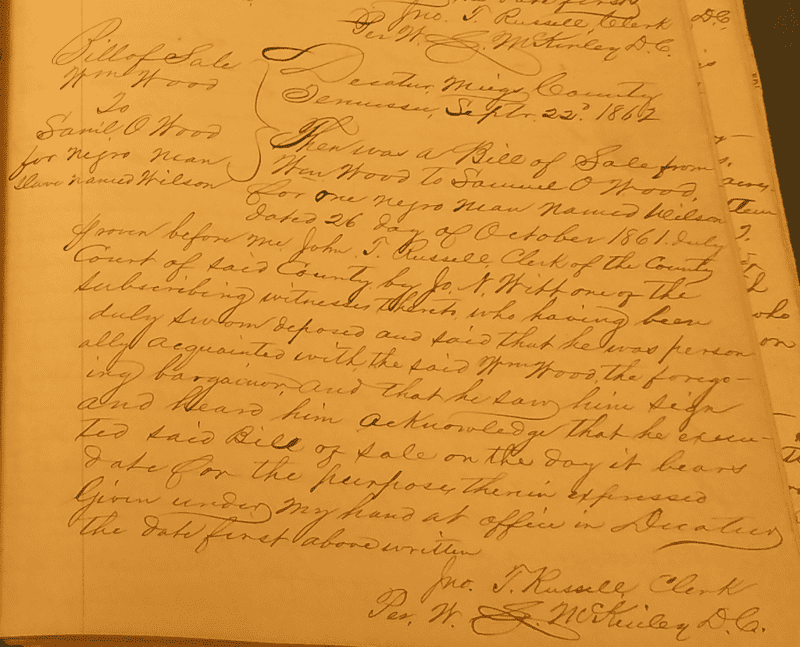 Jno. T. Russell, Clerk
Per W. G. McKinley D.C.
D.C.
Bill of Sale
Wm Wood
To
Saml O Wood
for negro man
slave named Wilson
Decatur, Meigs County
Tennessee, Septr. 22d. 1862
Then was a Bill of Sale from
Wm Wood to Samuel O Wood,
for one negro man named Wilson
dated 26 day of October 1861. duly
proven before me John T. Russell, Clerk of the County
Court of said County by Jo. N. Witt, one of the
subscribing witnesses thereto, who having been
duly sworn deposed and said that he was person
ally acquainted with, the said Wm Wood, the forego-
ing bargainor, and that he saw him sign
and heard him acknowledge that he execu-
ted said Bill of sale on the day it bears
date for the purposes therein expressed
Given under my hand at office in Decatur
the date first above written
Jno. T. Russell, Clerk
Per. W. G. McKinley D.C.
who
on